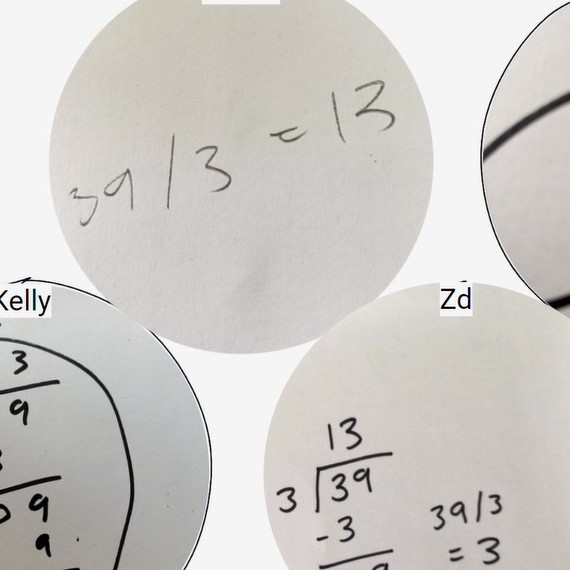 39/3 = 13
Kelly
3
9
9
9
Zd
13
3 39
-3
39/3
= 3